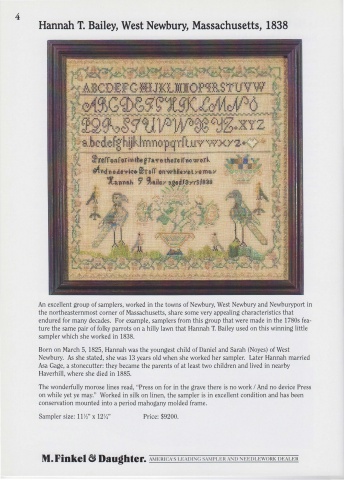 4
Hannah T. Bailey, West Newbury, Massachusetts, 1838
ABCDEFGHIJKLMNOPQRSTUVW
ABCDEFGHIJKLMNO
PQRSTUVWXYZ XYZ
abcdefghijklmnopqrstuvwxyz
Press on for in the grave there is no work
And no device Press on while yet ye may
Hannah T Bailey aged 13 yrs 1838
An excellent group of samplers, worked in the towns of Newbury, West Newbury and Newburyport in
the northeasternmost corner of Massachusetts, share some very appealing characteristics that
endured for many decades. For example, samplers from this group that were made in the 1790s fea-
ture the same pair of folky parrots on a hilly lawn that Hannah T. Bailey used on this winning little
sampler which she worked in 1838.
Born on March 5, 1825, Hannah was the youngest child of Daniel and Sarah (Noyes) of West
Newbury. As she stated, she was 13 years old when she worked her sampler. Later Hannah married
Asa Gage, a stonecutter: they became the parents of at least two children and lived in nearby
Haverhill, where she died in 1885.
The wonderfully morose lines read, "Press on for in the grave there is no work / And no device Press
on while yet ye may." Worked in silk on linen, the sampler is in excellent condition and has been
conservation mounted into a period mahogany molded frame.
Sampler size: 11½" x 12¼" Price: $9200.
M. Finkel & Daughter. AMERICA'S LEADING SAMPLER AND NEEDLEWORK DEALER